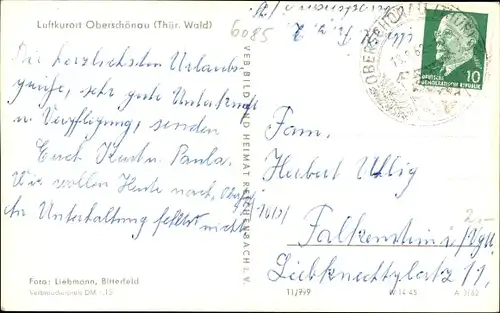 Luftkurort Oberschönau (Thür. Wald)
6085
Die herzlichsten Urlaubs-
grüße, sehr gute Unterkunft
u. Verpflegung, senden
Euch Kurt u. Paula.
Wir wollen heute nach
An Unterhaltung fehlt nicht
Foto: Liebmann, Bitterfeld
Verbraucherpreis DM
VEB BILD UND HEIMAT REICHENBACH i. V.
OBERSCHÖNAU (THÜR
10
DEUTSCHE
DEMOKRATISCHE REPUBLIK
Fam.
Herbert Uhlig
Falkenstein i/Vgtl
Liebknechtplatz 11.
2.-
11/799
A 3/62